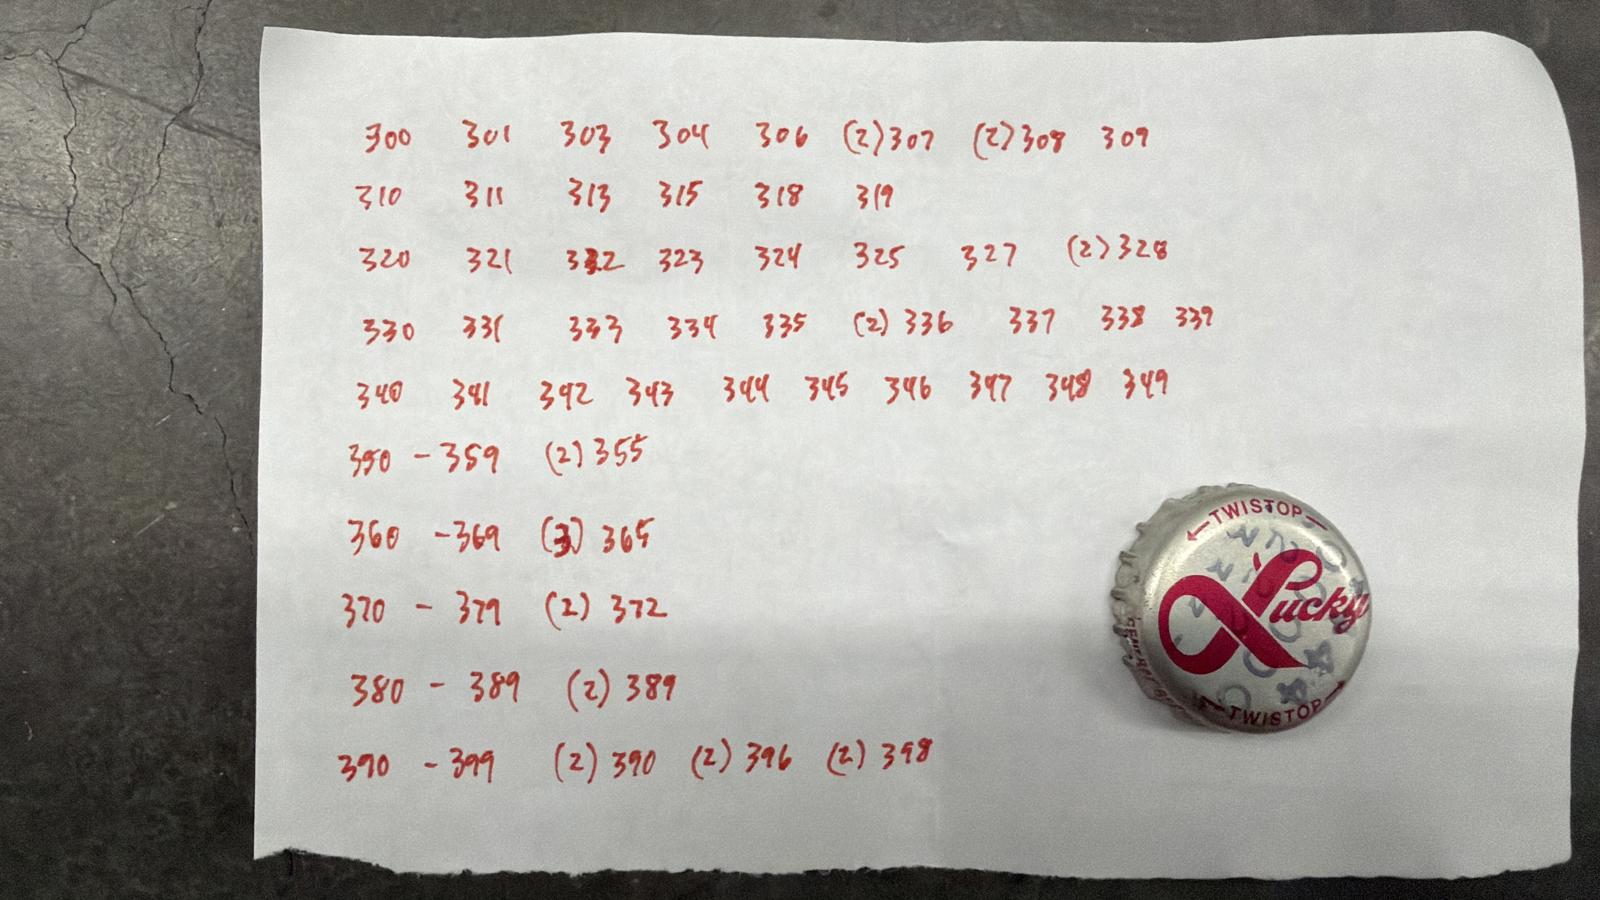 300 301 303 304 306 (2)307 (2)308 309
310 311 313 315 318 319
320 321 322 323 324 325 327 (2)328
330 331 333 334 335 (2) 336 337 338 339
340 341 342 343 344 345 346 347 348 349
350 - 359 (2) 355
360 - 369 (3) 365
370 - 379 (2) 372
380 - 389 (2) 389
390 - 399 (2) 390 (2) 396 (2) 398
←TWISTOP→
Lucky
←TWISTOP→